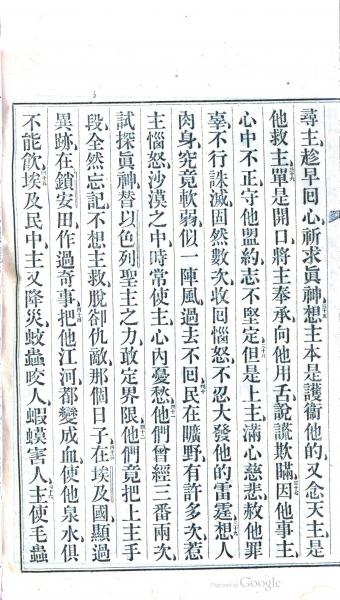 尋主、趁早回心祈求眞神、三十五想主本是護衞他的、又念天主、是
他救主、三十六單是開口將主奉承、向他用舌說謊欺瞞、三十七因他事主、
心中不正、守他盟約志不堅定、三十八但是上主滿心慈悲、赦他罪
辜、不行誅滅、固然數次收回惱怒、不忍大發他的雷霆、三十九想人
肉身究竟軟弱、似一陣風過去不回、四十民在曠野有許多次、惹
主惱怒、沙漠之中、時常使主心內憂愁、四十一他們曾經三番兩次、
試探眞神、替以色列聖主之力敢定界限、四十二他們竟把上主手
段全然忘記、不想主救脫卻仇敵那個日子、四十三在埃及國顯過
異跡、在鎖安田作過奇事、四十四把他江河都變成血、使他泉水俱
不能飲、四十五埃及民中、主又降災、蚊蟲咬人、蝦蟆害人、四十六主使毛蟲
Digitized by Google